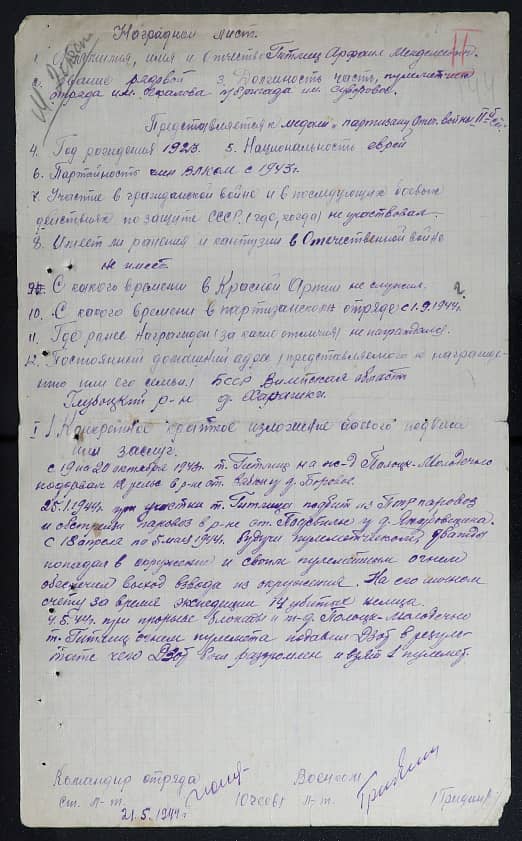 Наградной лист.
1. Фамилия, имя и отчество Гитлиц Арфаил Менделевич.
2. Звание рядовой 3. Должность часть, пулеметчик
отряда им. Чкалова бригада им. Суворова.
Представляется к медали "партизану Отеч. войны II-й ст.
4. Год рождения 1923 5. Национальность еврей
6. Партийность член ВЛКСМ с 1943 г.
7. Участие в гражданской войне и в последующих боевых
действиях по защите СССР (где, когда) не участвовал.
8. Имеет ли ранения и контузии в Отечественной войне
не имеет
9. С какого времени в Красной Армии не служил.
10. С какого времени в партизанском отряде с 1.9.1942 г.
11. Где ранее награжден (за какие отличия) не награждался.
12. Постоянный домашний адрес (представляемого к награжде-
нию или его семьи) БССР Вилейская область
Глубоцкий р-н д.
I Конкретное краткое изложение боевого подвига
или заслуг.
с 19 на 20 октября 1943 г. т. Гитлиц на ж-д Полоцк-Молодечно
подорвал 12 рельс в р-не ст. у д.
25.1.1944 г. при участии т. Гитлица подбит из ПТР паровоз
и обстрелян паровоз в р-не ст. Подсвилье у д.
С 18 апреля по 5 мая 1944 г. будучи пулеметчиком, дважды
попадал в окружение и своим пулеметным огнем
обеспечил выход взвода из окружения. На его личном
счету за время экспедиции 14 убитых немца.
4.5.44 г. при прорыве блокады и ж-д. Полоцк-Молодечно
т. Гитлиц огнем пулемета подавил Дзот в резуль-
тате чего Дзот был разгромлен и взят 1 пулемет.
Командир отряда Военком
ст. л-т. л-т.
21.5.1944 г.